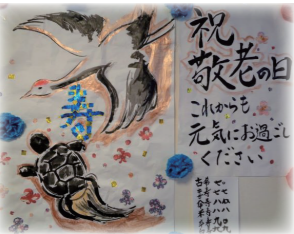 寿
祝
敬老の日
これからも
元気にお過ごし
ください